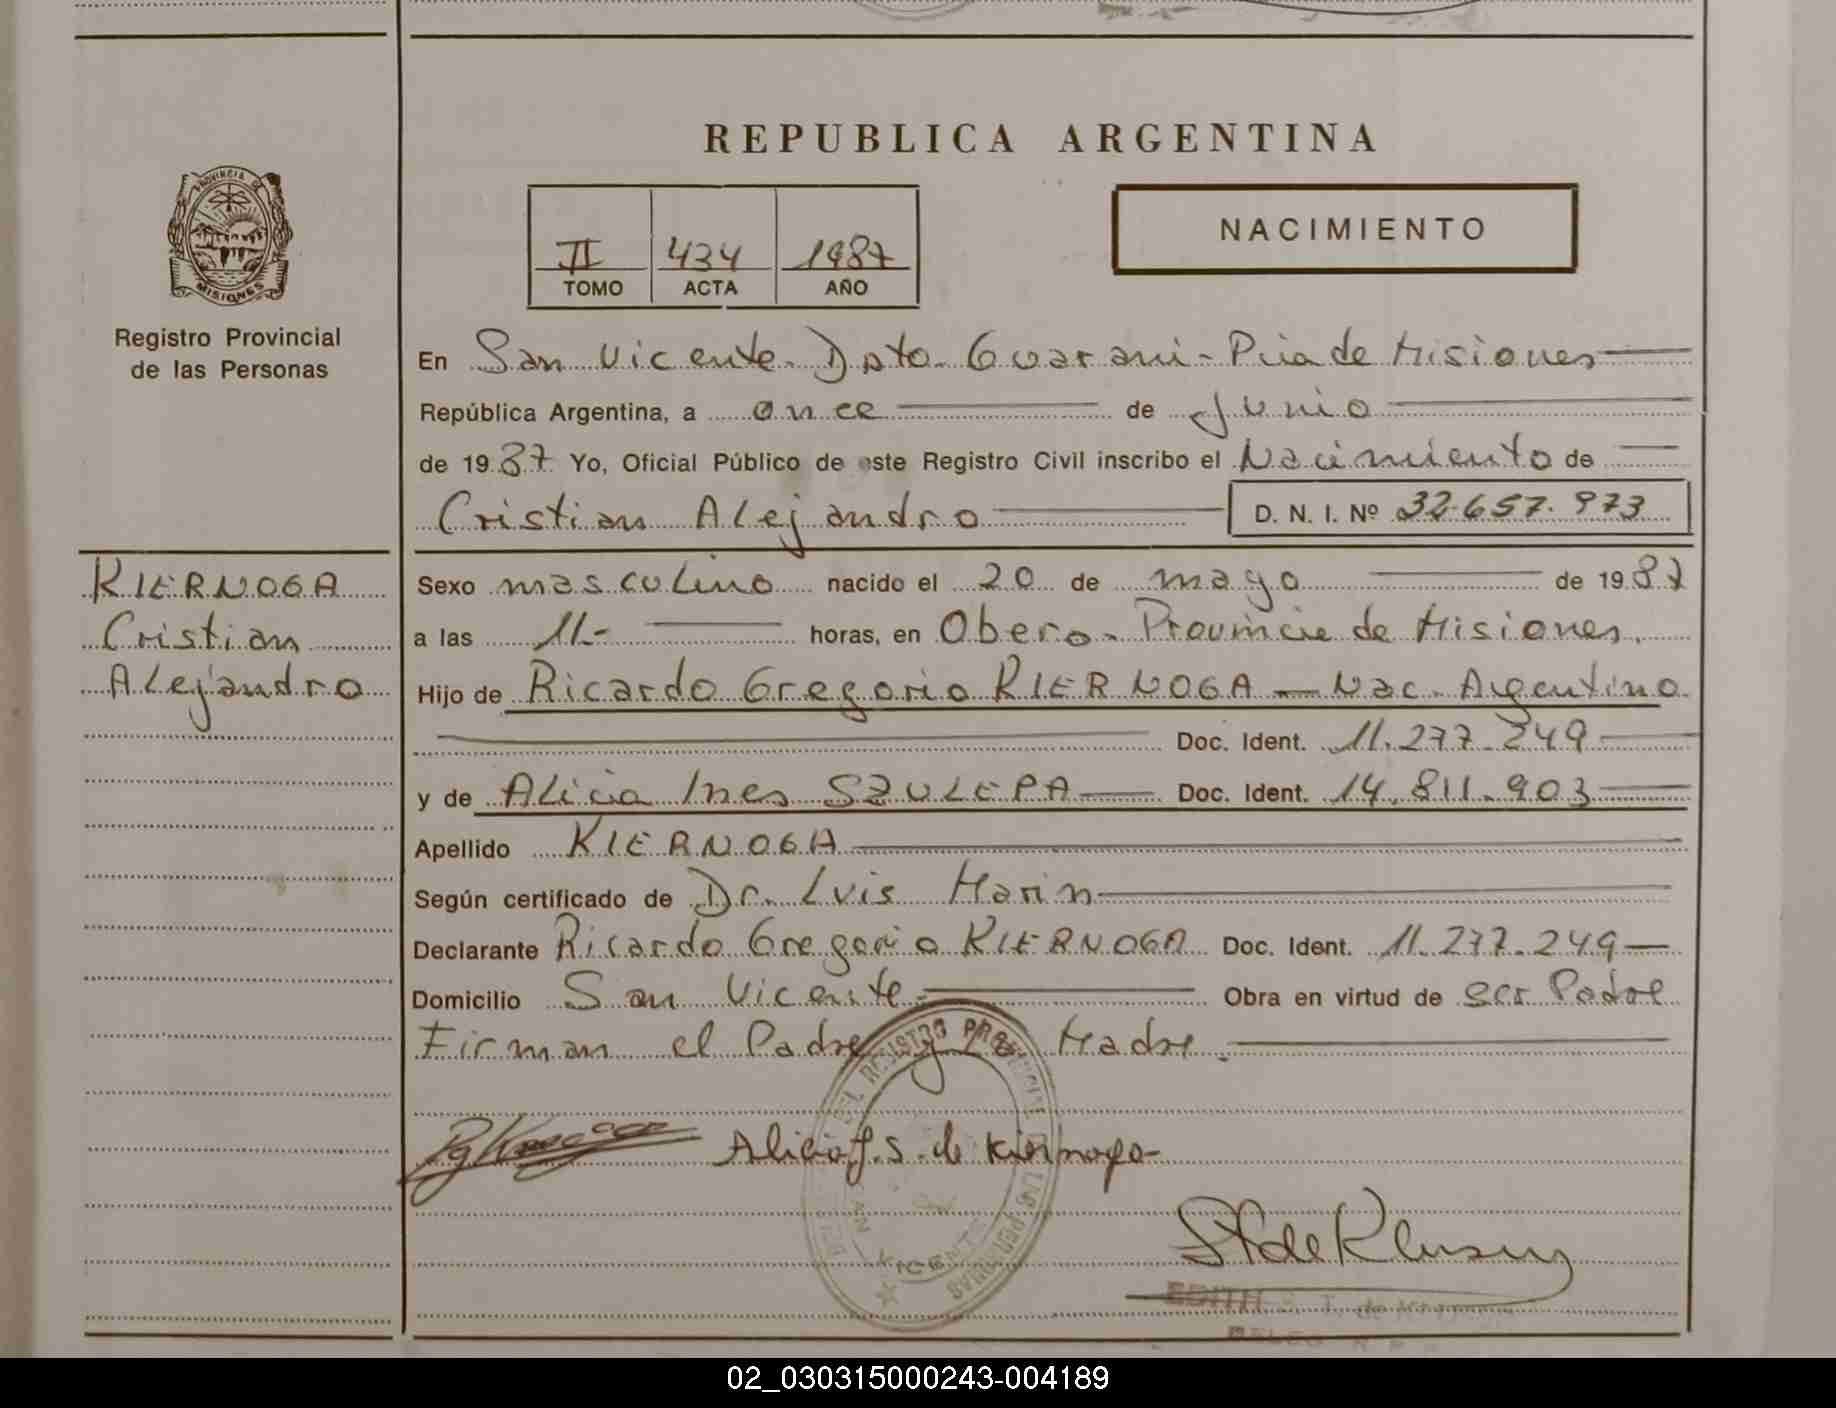 REPUBLICA ARGENTINA
PROVINCIA DE
MISIONES
Registro Provincial
de las Personas
II 434 1987
TOMO ACTA AÑO
NACIMIENTO
En San Vicente - Dpto. Guarani - Pcia de Misiones
República Argentina, a once de Junio
de 1987 Yo, Oficial Público de este Registro Civil inscribo el Nacimiento de
Cristian Alejandro D. N. I. Nº 32.657.973
KIERNOGA
Cristian
Alejandro
Sexo masculino nacido el 20 de mayo de 1987
a las 11.- horas, en Obera - Provincia de Misiones.
Hijo de Ricardo Gregorio KIERNOGA - Nac. Argentino
Doc. Ident. 11.277.249
y de Alicia Ines SZULEPA Doc. Ident. 14.811.903
Apellido KIERNOGA
Según certificado de Dr. Luis Marin
Declarante Ricardo Gregorio KIERNOGA Doc. Ident. 11.277.249
Domicilio San Vicente Obra en virtud de ser Padre
Firman el Padre y la Madre.
DEL REGISTRO PROVINCIAL DE LAS PERSONAS
SAN VICENTE
Alicia I. S. de Kiernoga
EDITH S. T. de
02_030315000243-004189